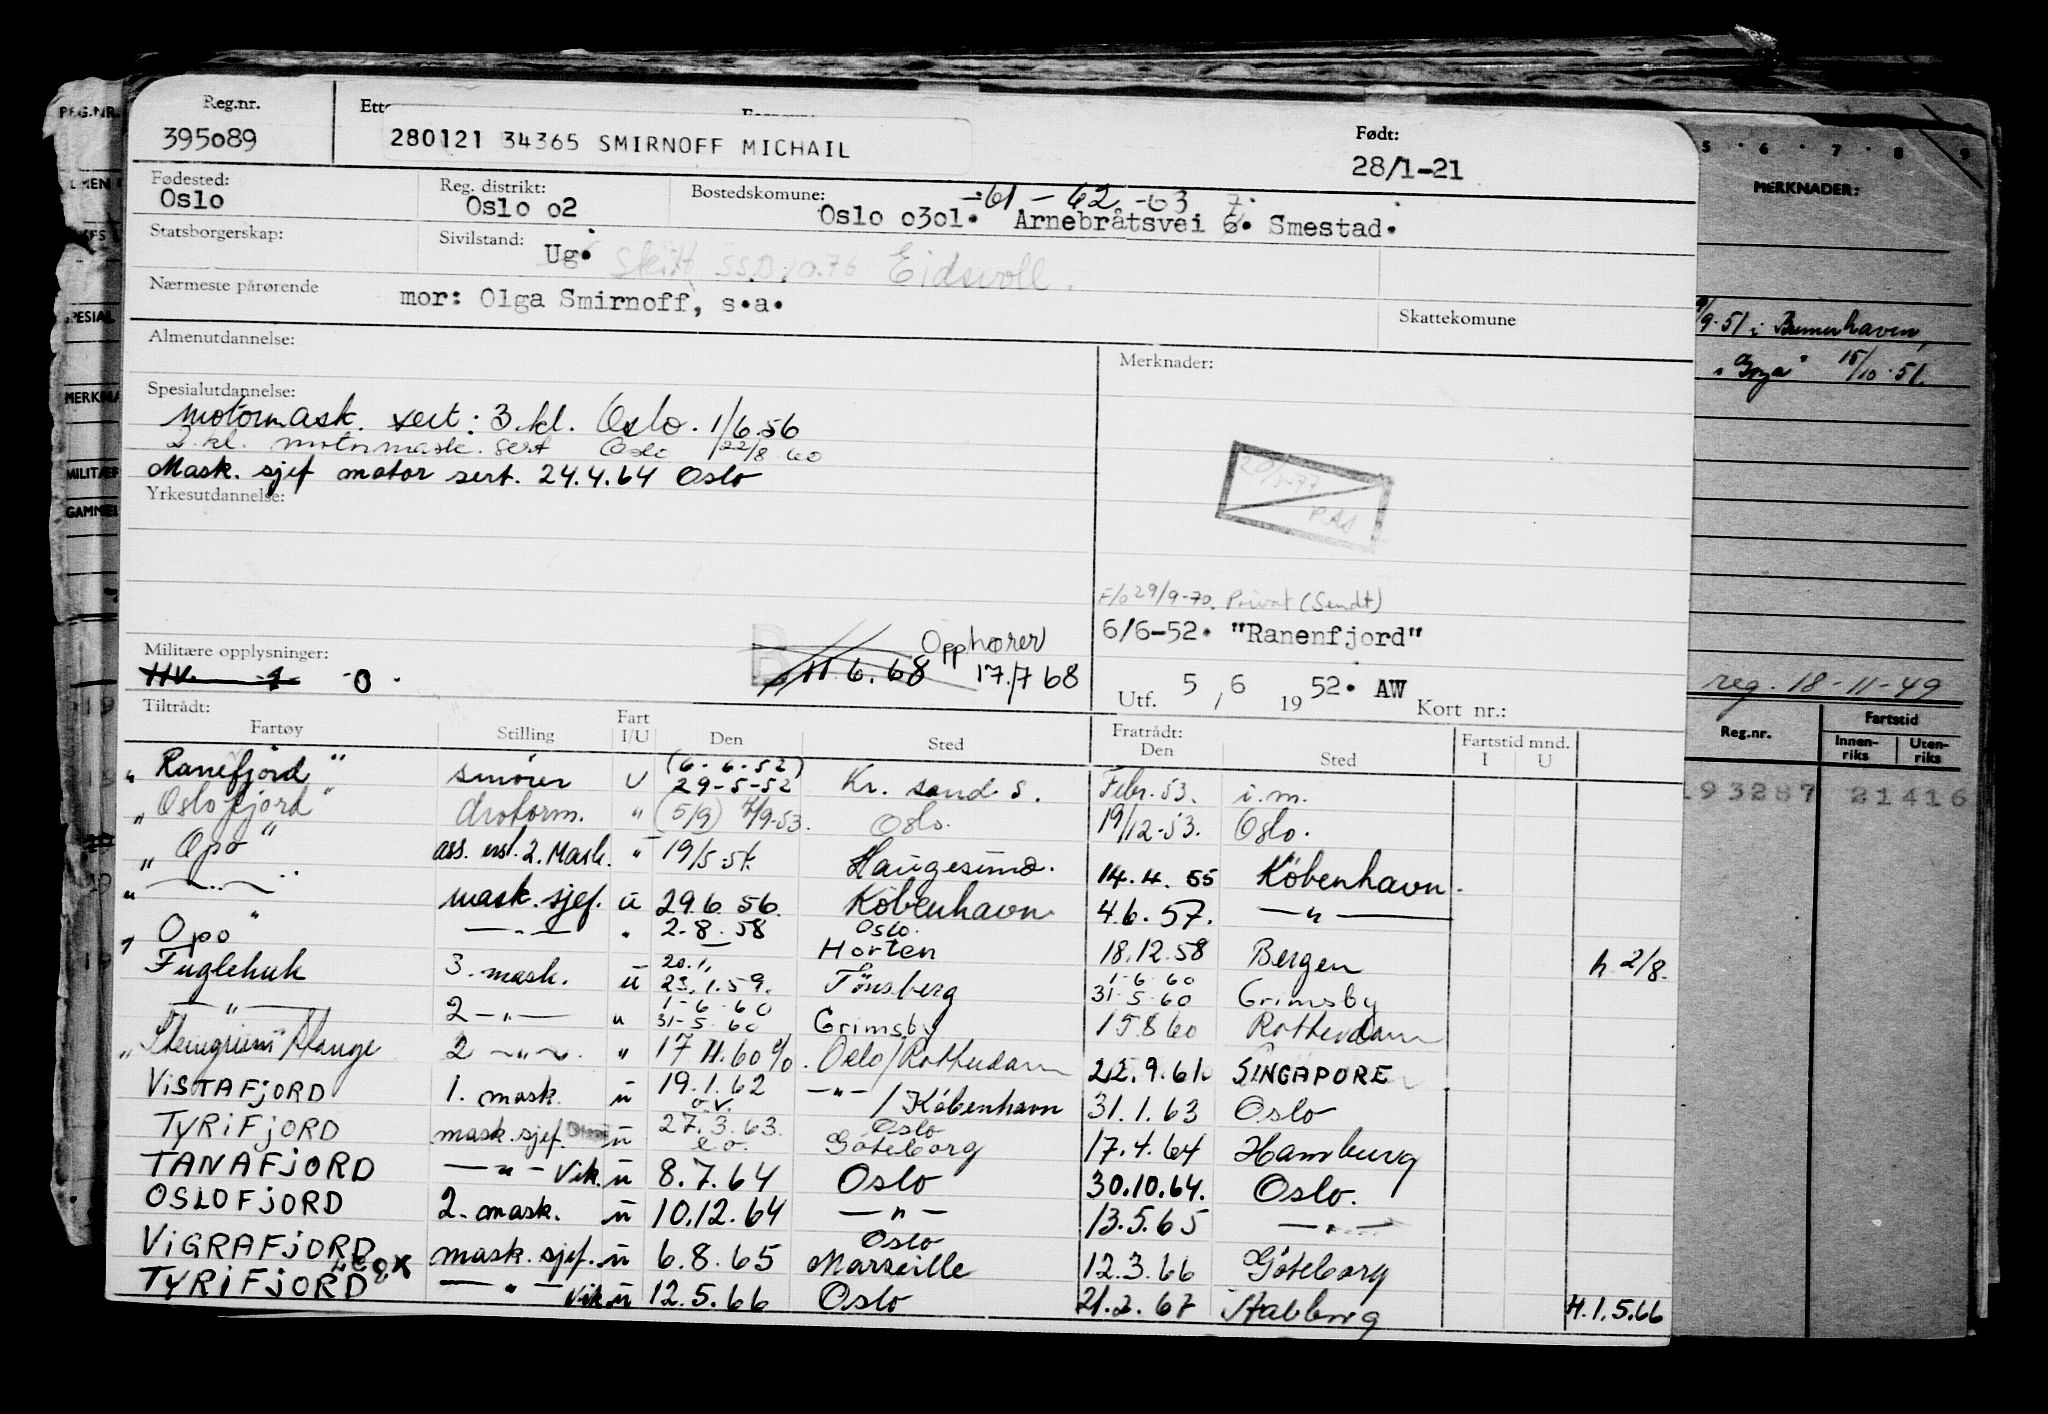 Reg.nr. Født:
395o89 280121 34365 SMIRNOFF MICHAIL 28/1-21
Fødested: Reg. distrikt: Bostedskomune: -61-62-63 7
Oslo Oslo o2 Oslo o3o1. Arnebråtsvei 6. Smestad.
Statsborgerskap: Sivilstand: Ug. Skilt SSB 10.76 Eidsvoll.
Nærmeste pårørende mor: Olga Smirnoff, s.a. Skattekomune
Almenutdannelse: Merknader:
Spesialutdannelse:
Motormask. sert: 3. kl. Oslo. 1/6.56
2. kl. motormask. sert Oslo 22/8 60
Mask. sjef motor sert. 24.4.64 Oslo
Yrkesutdannelse:
F/o 29/9-70. Privat (Sendt)
6/6-52. "Ranenfjord"
Militære opplysninger: Opphører
HV 1 0. B 11.6.68 17./7 68
Utf. 5 / 6 19 52. AW Kort nr.:
Tiltrådt: Fratrådt:
Fartøy Stilling Fart I/U Den Sted Den Sted Fartstid mnd. I U
"Ranefjord" smører U (6-6-52) 29-5-52 Kr. sand S. Febr. 53. i.m.
"Oslofjord" " (5/9) 7/9-53. Oslo. 19/12-53. Oslo.
"Opo" ass. erst. 2. Mask. " 19/5.54. Haugesund. 14.4.55 København.
" — " — mask. sjef. u 29.6.56. København 4.6.57. — " —
"Opo" — " — " 2.8.58 Oslo. Horten 18.12.58 Bergen h 2/8.
Fuglehuk 3. mask. u 20.1. 23.1.59. Tønsberg 1-6-60 31-5-60 Grimsby
— " — 2 — " — u 1-6-60 31-5-60 Grimsby 15.8 60 Rotterdam
2 — " — " 17.11.60 Oslo/Rotterdam 22.9.61 SINGAPORE
VISTAFJORD 1. mask. u 19.1.62 — " — / København 31.1.63 Oslo
TYRIFJORD mask. sjef. u 27.3.63. Oslo Göteborg 17.4.64 Hamburg
TANAFJORD — " — Vik. u 8.7.64 Oslo 30.10.64. Oslo.
OSLOFJORD 2. mask. u 10.12.64 — " — 13.5.65 — " —
VIGRAFJORD mask. sjef. u 6.8.65 Oslo Marseille 12.3.66 Göteborg
TYRIFJORD — " — Vik. u 12.5.66 Oslo 21.2.67 H.1.5.66
REG.NR.
5 6 7 8 9
MERKNADER:
/9-51 i Bremerhaven,
15/10-51.
reg. 18-11-49
Reg.nr. Fartstid
Innen-riks Uten-riks
193287 21416